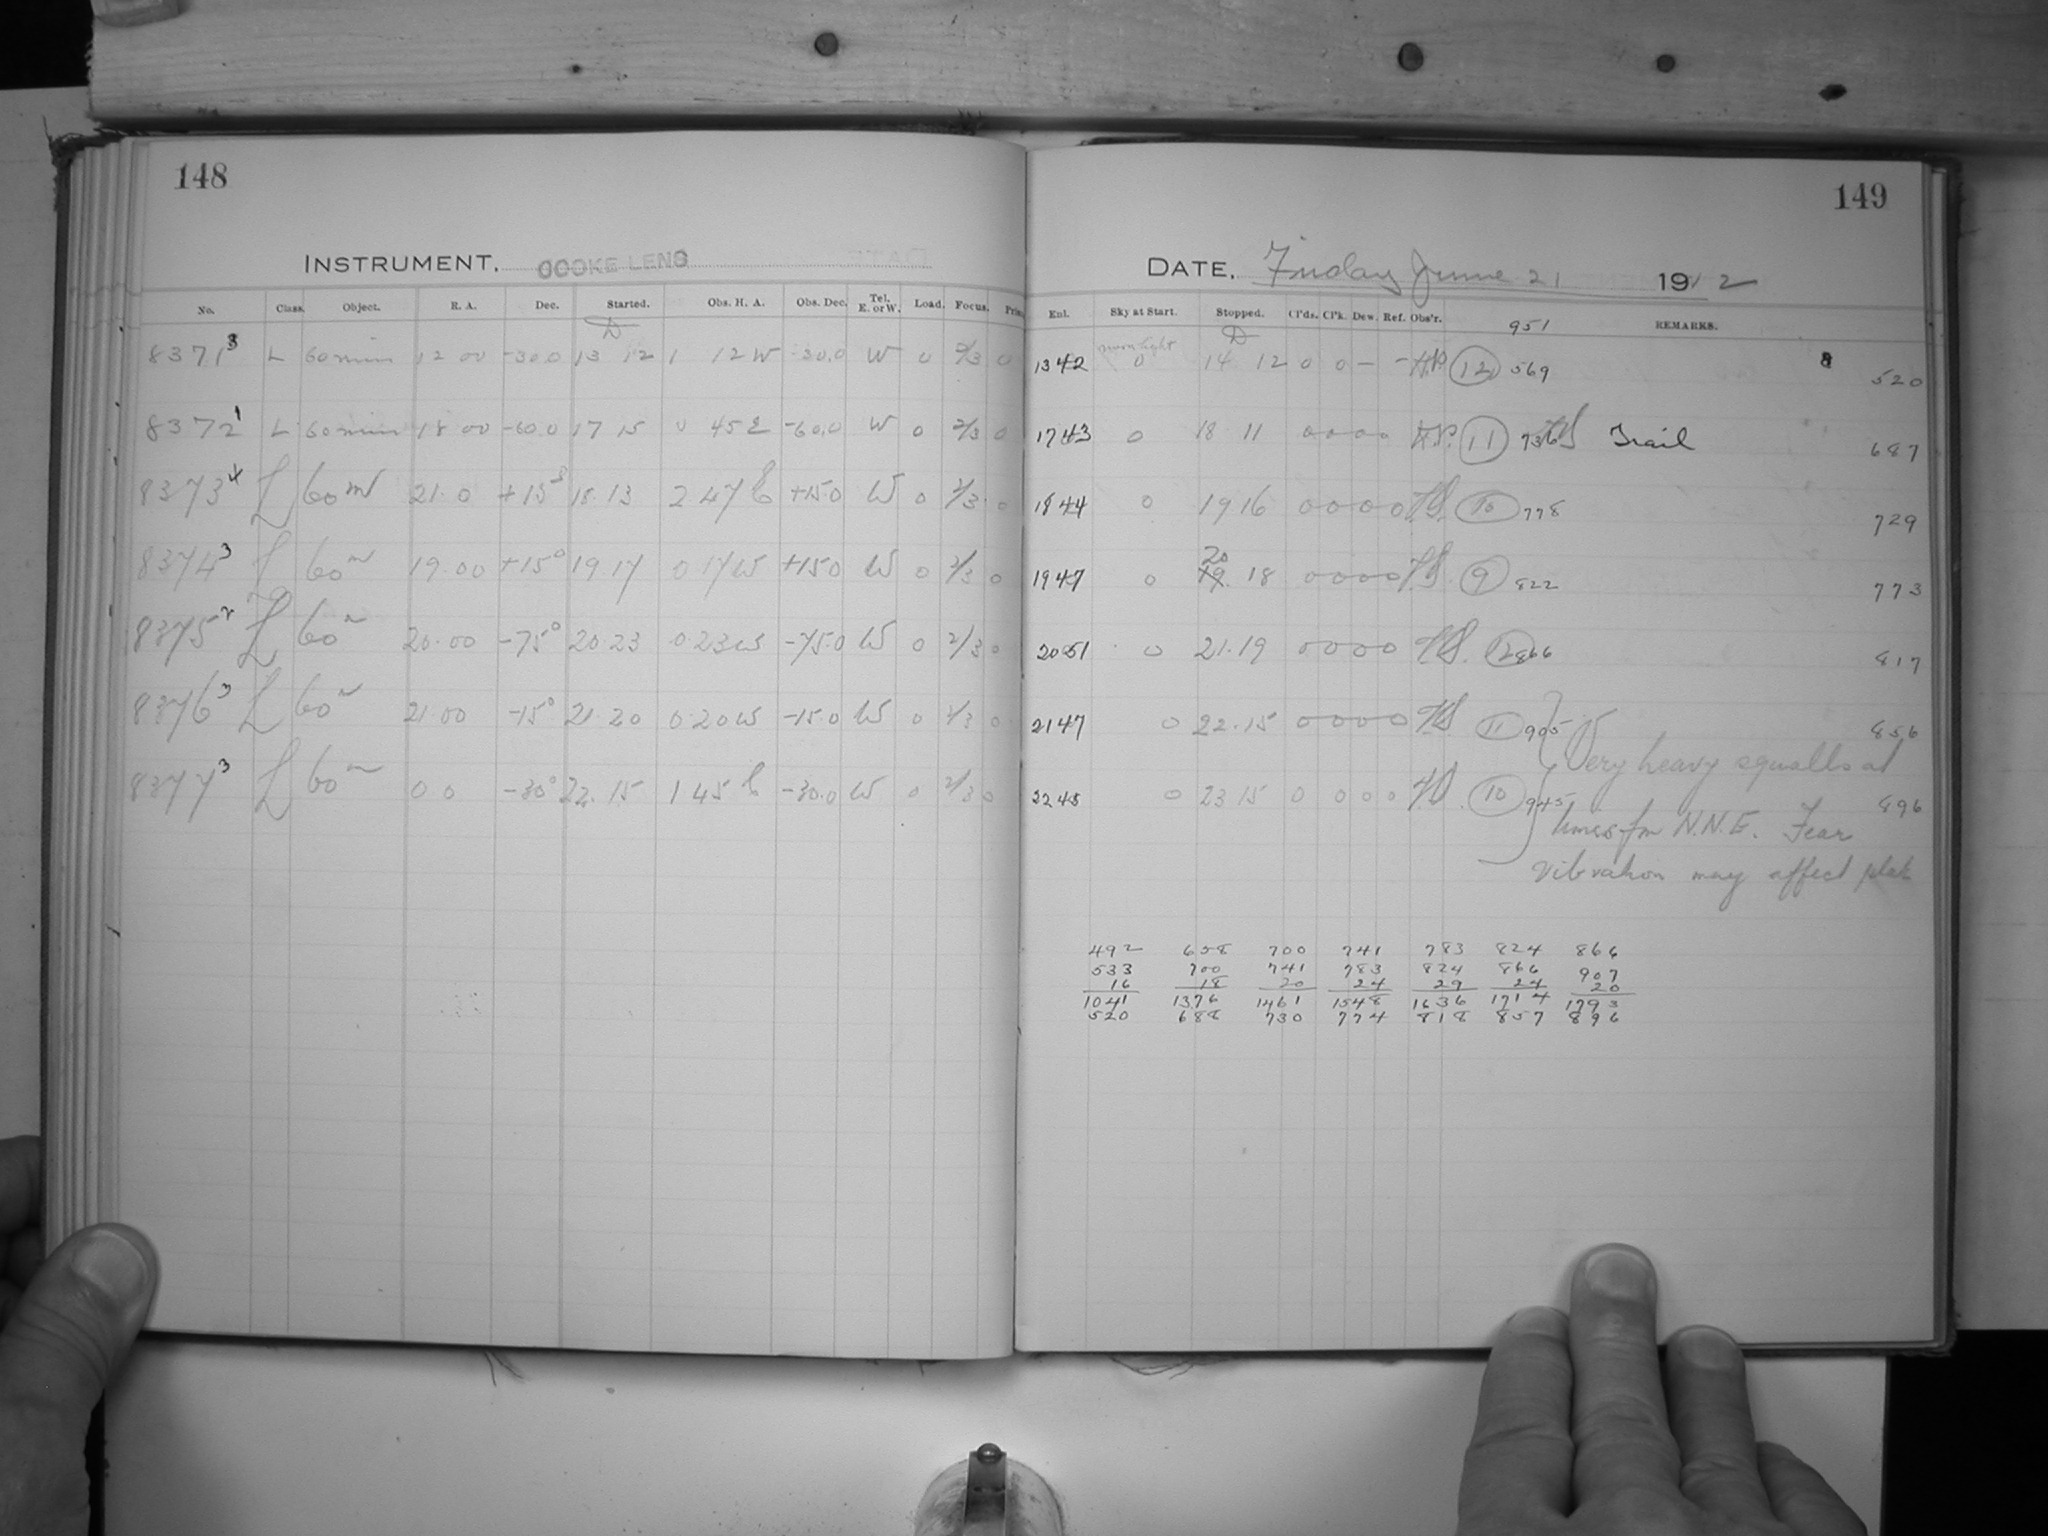 148
INSTRUMENT. COOKE LENS
No. Class. Object. R. A. Dec. Started. Obs. H. A. Obs. Dec. Tel. E. or W. Load. Focus.
8371 3 L 60 min 12 00 -30.0 13 12 1 12 W -30.0 W 0 2/3 0
8372 1 L 60 min 18 00 -60.0 17 15 0 45 E -60.0 W 0 2/3 0
8373 4 L 60 m 21.0 +15° 18.13 2 47 E +15.0 W 0 2/3 0
8374 3 L 60 m 19.00 +15° 19 17 0 17 W +15.0 W 0 2/3 0
8375 2 L 60 m 20.00 -75° 20.23 0.23 W -75.0 W 0 2/3 0
8376 3 L 60 m 21.00 -15° 21.20 0.20 W -15.0 W 0 2/3 0
8377 3 L 60 m 0 0 -30° 22.15 1 45 E -30.0 W 0 2/3 0
149
DATE. Friday June 21 1912
Enl. Sky at Start. Stopped. Cl'ds. Cl'k. Dew. Ref. Obs'r. 951 REMARKS.
1342 moonlight 0 14 12 0 0 - - 12 569 8 520
1743 0 18 11 0 0 0 0 11 736 Trail 687
1844 0 19 16 0 0 0 0 10 778 729
1947 0 20 19 18 0 0 0 0 9 822 773
2051 0 21.19 0 0 0 0 12 866 817
2147 0 22.15 0 0 0 0 11 905 856
Very heavy squalls at
2245 0 23 15 0 0 0 0 10 945 896
times fm N.N.E. Fear
vibration may affect plate
492 658 700 741 783 824 866
533 700 741 783 824 866 907
16 18 20 24 29 24 20
1041 1376 1461 1548 1636 1714 1793
520 688 730 774 818 857 896